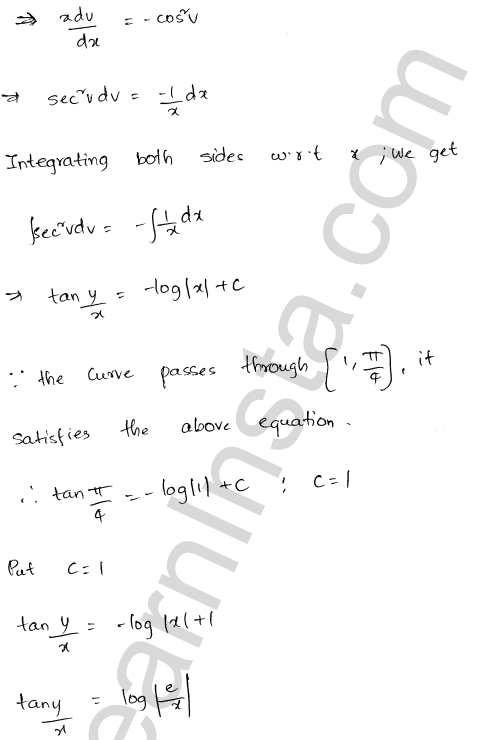 ⇒ xdv/dx = -cos²v
⇒ sec²v dv = -1/x dx
Integrating both sides w.r.t x ; we get
∫sec²vdv = -∫1/x dx
⇒ tan y/x = -log|x| + C
∵ the curve passes through [1, π/4], it
satisfies the above equation.
∴ tan π/4 = -log|1| + C ; C=1
Put C=1
tan y/x = -log|x|+1
tan y/x = log|e/x|
earnInsta.com